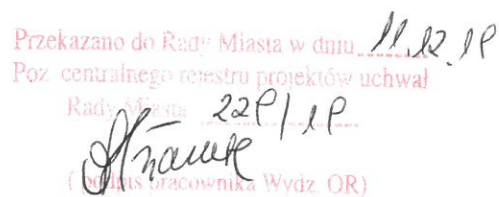 Przekazano do Rady Miasta w dniu 11.12.18
Poz. centralnego rejestru projektów uchwał
Rady Miasta 228/18
(podpis pracownika Wydz. OR)